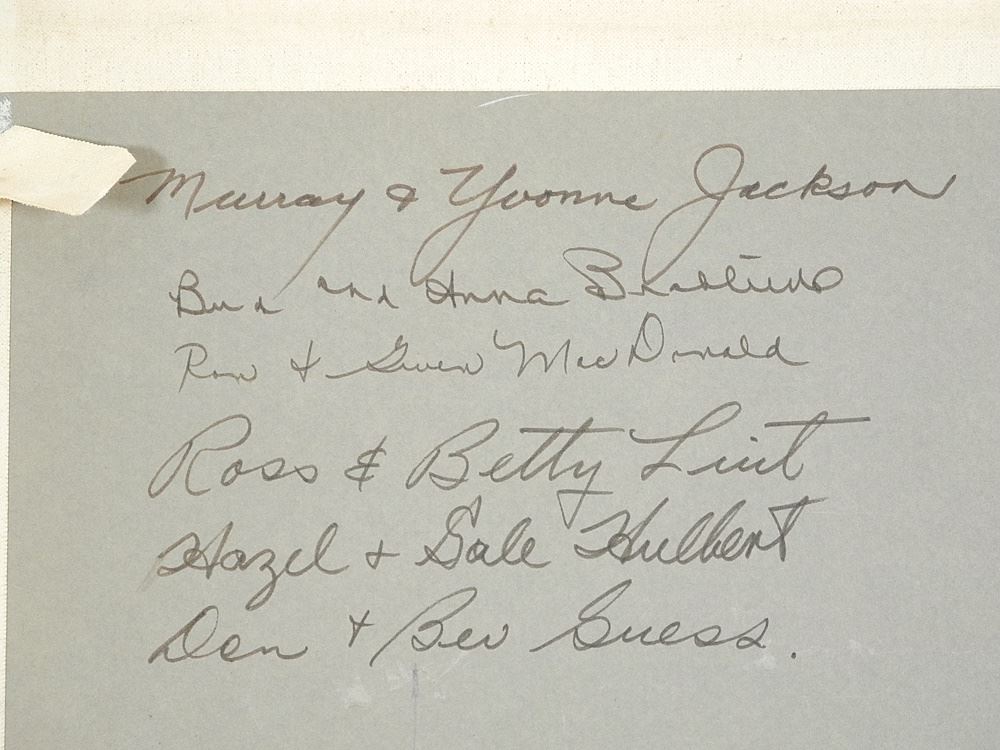 Murray & Yvonne Jackson
Bud and Anna
Ron & Gwen MacDonald
Ross & Betty Lint
Hazel + Gale Hulbert
Don + Bev Guess.